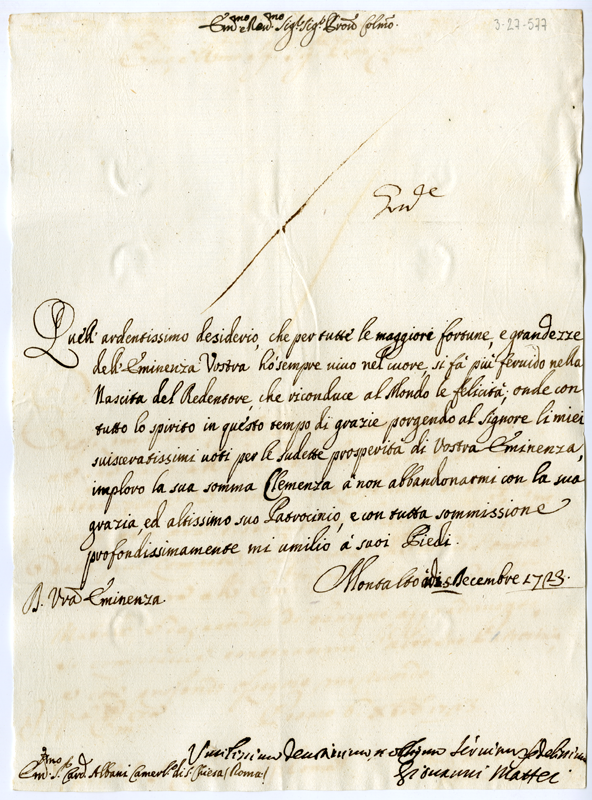 Em.mo e Rev.mo Sig.r Sig.r Prone Colmo.
3-27-577
Quell' ardentissimo desiderio, che per tutte le maggiori fortune, e grandezze
dell' Eminenza Vostra hò sempre vivo nel cuore, si fà più fervido nella
Nascita del Redentore, che riconduce al Mondo le felicità, onde con
tutto lo spirito in questo tempo di grazie porgendo al Signore li miei
svisceratissimi voti per le sudette prosperità di Vostra Eminenza,
imploro la sua somma Clemenza à non abbandonarmi con la sua
grazia, ed altissimo suo Patrocinio, e con tutta sommissione
profondissimamente mi umilio à suoi Piedi.
Montalto Decembre 1723.
B. Vra Eminenza
Umilissimo
Em.mo S. Card. Albani Camerl.o di S. Chiesa (Roma)
Giovanni Mattei